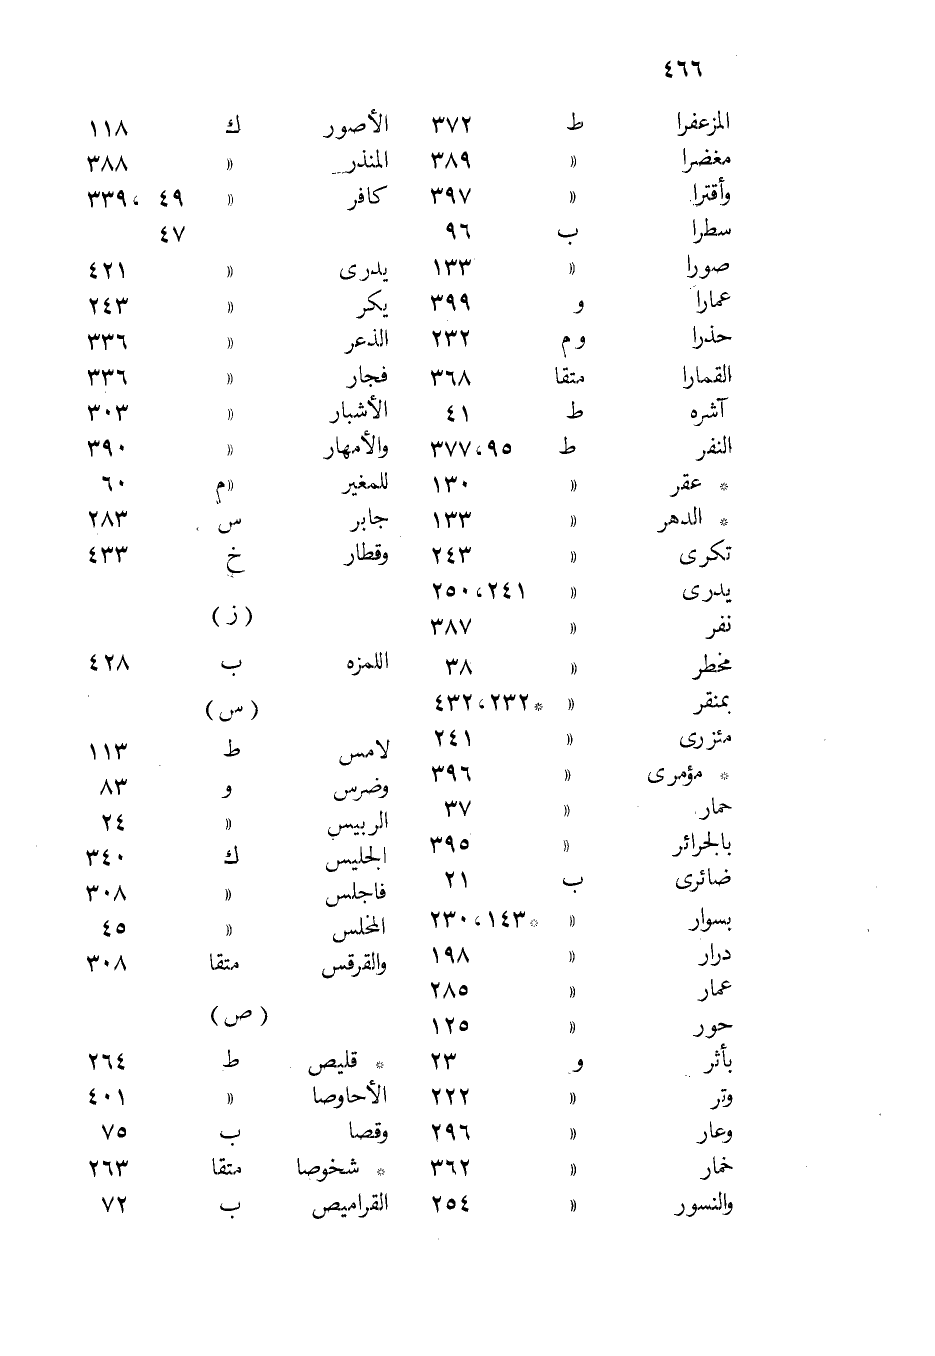 ٤٦٦
المزعفرا ط ٣٧٢
مغضرا » ٣٨٩
وأقترا » ٣٩٧
سطرا ب ٩٦
صورا » ١٣٣
عمارا و ٣٩٩
حذرا وم ٢٣٢
القمارا متقا ٣٦٨
آشره ط ٤١
النفر ط ٩٥،٣٧٧
* عقر » ١٣٠
* الدهر » ١٣٣
تكرى » ٢٤٣
يدرى » ٢٤١،٢٥٠
نفر » ٣٨٧
مخطر » ٣٨
بمنقر » *٢٣٢،٤٣٢
مئزرى » ٢٤١
* مؤمرى » ٣٩٦
حمار » ٣٧
بالحرائر » ٣٩٥
ضائرى ب ٢١
بسوار » *١٤٣،٢٣٠
درار » ١٩٨
عمار » ٢٨٥
حور » ١٢٥
بأثر و ٢٣
وتر » ٢٢٢
وعار » ٢٩٦
خمار » ٣٦٢
والنسور » ٢٥٤
الأصور ك ١١٨
المنذر » ٣٨٨
كافر » ٤٩ ،٣٣٩
٤٧
يدرى » ٤٢١
يكر » ٢٤٣
الذعر » ٣٣٦
فجار » ٣٣٦
الأشبار » ٣٠٣
والأمهار » ٣٩٠
للمغير »م ٦٠
جابر س ٢٨٣
وقطار خ ٤٣٣
(ز)
اللمزه ب ٤٢٨
(س)
لامس ط ١١٣
وضرس و ٨٣
الربيس » ٢٤
الجليس ك ٣٤٠
فاجلس » ٣٠٨
المخلس » ٤٥
والقرقس متقا ٣٠٨
(ص)
* قليص ط ٢٦٤
الأحاوصا » ٤٠١
وقصا ب ٧٥
* شخوصا متقا ٢٦٣
القراميص ب ٧٢